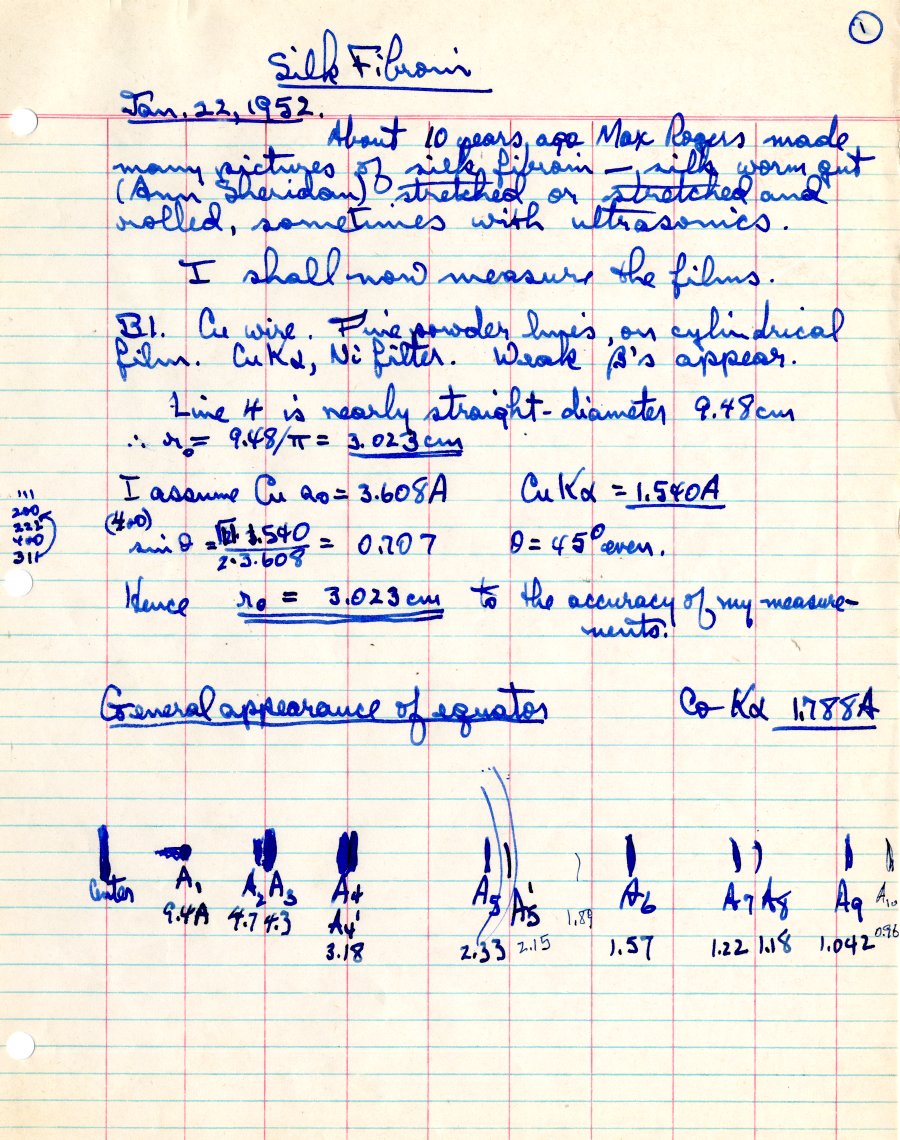 1
Silk Fibroin
Jan. 22, 1952.
About 10 years ago Max Rogers made
many pictures of silk fibroin – silk worm gut
(Ann Sheridan) stretched or stretched and
rolled, sometimes with ultrasonics.
I shall now measure the films.
B1. Cu wire. Fine powder lines, on cylindrical
film. CuKα, Ni filter. Weak β's appear.
Line 4 is nearly straight - diameter 9.48cm
∴ r₀ = 9.48/π = 3.023cm
I assume Cu a₀ = 3.608A CuKα = 1.540A
111
200
222
400
311
(400)
sin θ = 1.540 / 2·3.608 = 0.707 θ = 45° even.
Hence r₀ = 3.023cm to the accuracy of my measure-
ments.
General appearance of equator Co Kα 1.788A
Center A₁ A₂ A₃ A₄ A₅ A₅' A₆ A₇ A₈ A₉ A₁₀
A₄'
9.4A 4.7 4.3 3.18 2.33 2.15 1.89 1.57 1.22 1.18 1.042 0.96